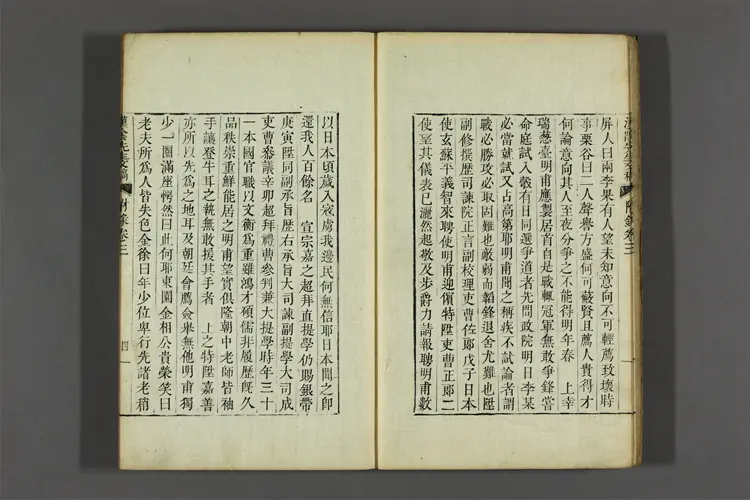 屏人曰兩李果有人望未知意向不可輕薦致壞時
事栗谷曰二人聲譽方盛何可蔽賢且薦人貴得才
何論意向其人至夜分爭之不能得明年春 上幸
瑞蔥臺明甫應製居首自是戰輒冠軍無敢爭鋒嘗
命庭試入彀有日同選爭道者先問政院明日李某
必當就試又占高第耶明甫聞之稱疾不試論者謂
戰必勝攻必取固難也敵弱而韜鋒退舍尤難也陞
副修撰歷司諫院正言副校理吏曹佐郞戊子日本
使玄蘇平義智來聘使明甫迎儐特陞吏曹正郞二
使望其儀表已灑然起敬及步爵力請報聘明甫數
以日本頃歲入寇虜我邊民何無信耶日本聞之卽
還我人百餘名 宣宗嘉之超拜直提學仍賜銀帶
庚寅陞同副承旨歷右承旨大司諫副提學大司成
吏曹參議辛卯超拜禮曹參判兼大提學時年三十
一本國官職以文衡爲重雖鴻才碩儒非履歷旣久
品秩崇重鮮能居之明甫望實俱隆朝中老師皆袖
手讓登牛耳之執無敢援其手者 上之特陞嘉善
亦所以先爲之地耳及朝廷會薦僉舉無他明甫獨
少一圈滿座愕然曰此何耶東園金相公貴榮笑曰
老夫所爲人皆失色金徐曰年少位卑行先諸老稍
漢陰先生文稿 附錄卷三
四